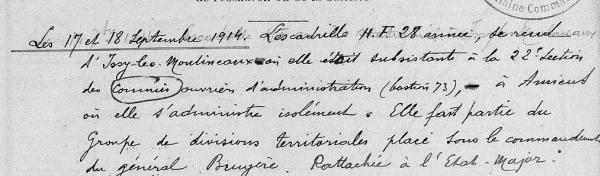 Les 17 et 18 Septembre 1914. L'escadrille H.F. 28 année, se rend
d'Issy-les-Moulineaux où elle était subsistante à la 22e Section
des Commis ouvriers d'administration (bastion 73), à Amiens
où elle s'administre isolément. Elle fait partie du
Groupe de divisions territoriales placé sous le commandement
du général Brugère. Rattachée à l'Etat-Major.